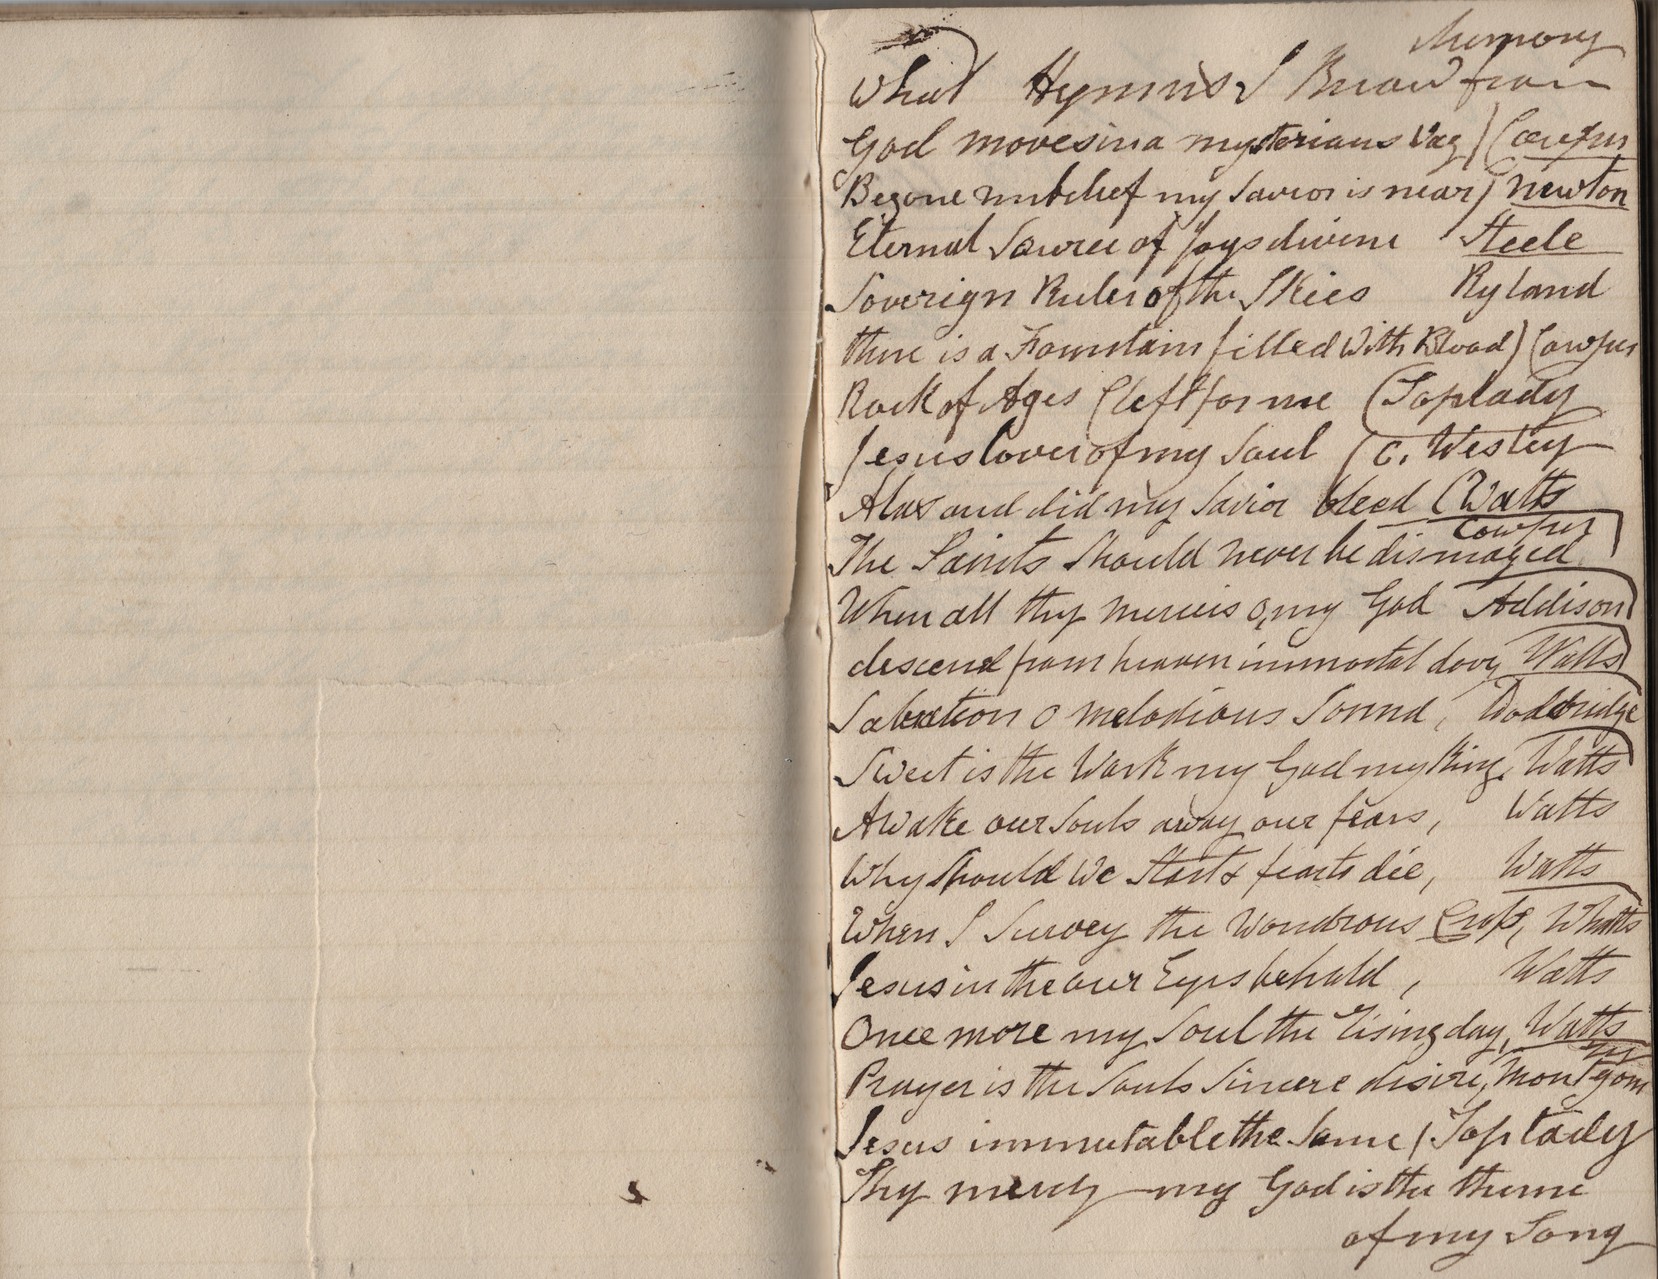 Memory
What Hymns I Know from
God moves in a mysterious Way) (Cowper
Begone unbelief my Savior is near) Newton
Eternal Source of Joys divine Steele
Soverign Ruler of the Skies Ryland
there is a Fountain filled With Blood) (Cowper
Rock of Ages Cleft for me (Toplady
Jesus lover of my Soul (C. Wesley
Alas and did my Savior bleed (Watts
Cowper
The Saints Should never be dismayed
When all thy mercies o, my God Addison
descend from heaven immortal dove Watts
Salvation O melodious Sound, Doddridge
Sweet is the Work my God my King, Watts
Awake our Souls away our fears, Watts
Why Should We Start & fear to die, Watts
When I Survey the Wondrous Cross, Whatts
Jesus in the our Eyes behold, Watts
Once more my Soul the rising day, Watts
Prayer is the Souls Sincere desire, Montgom
ry
Jesus immutable the Same (Toplady
Thy mercy my God is the theme
of my Song